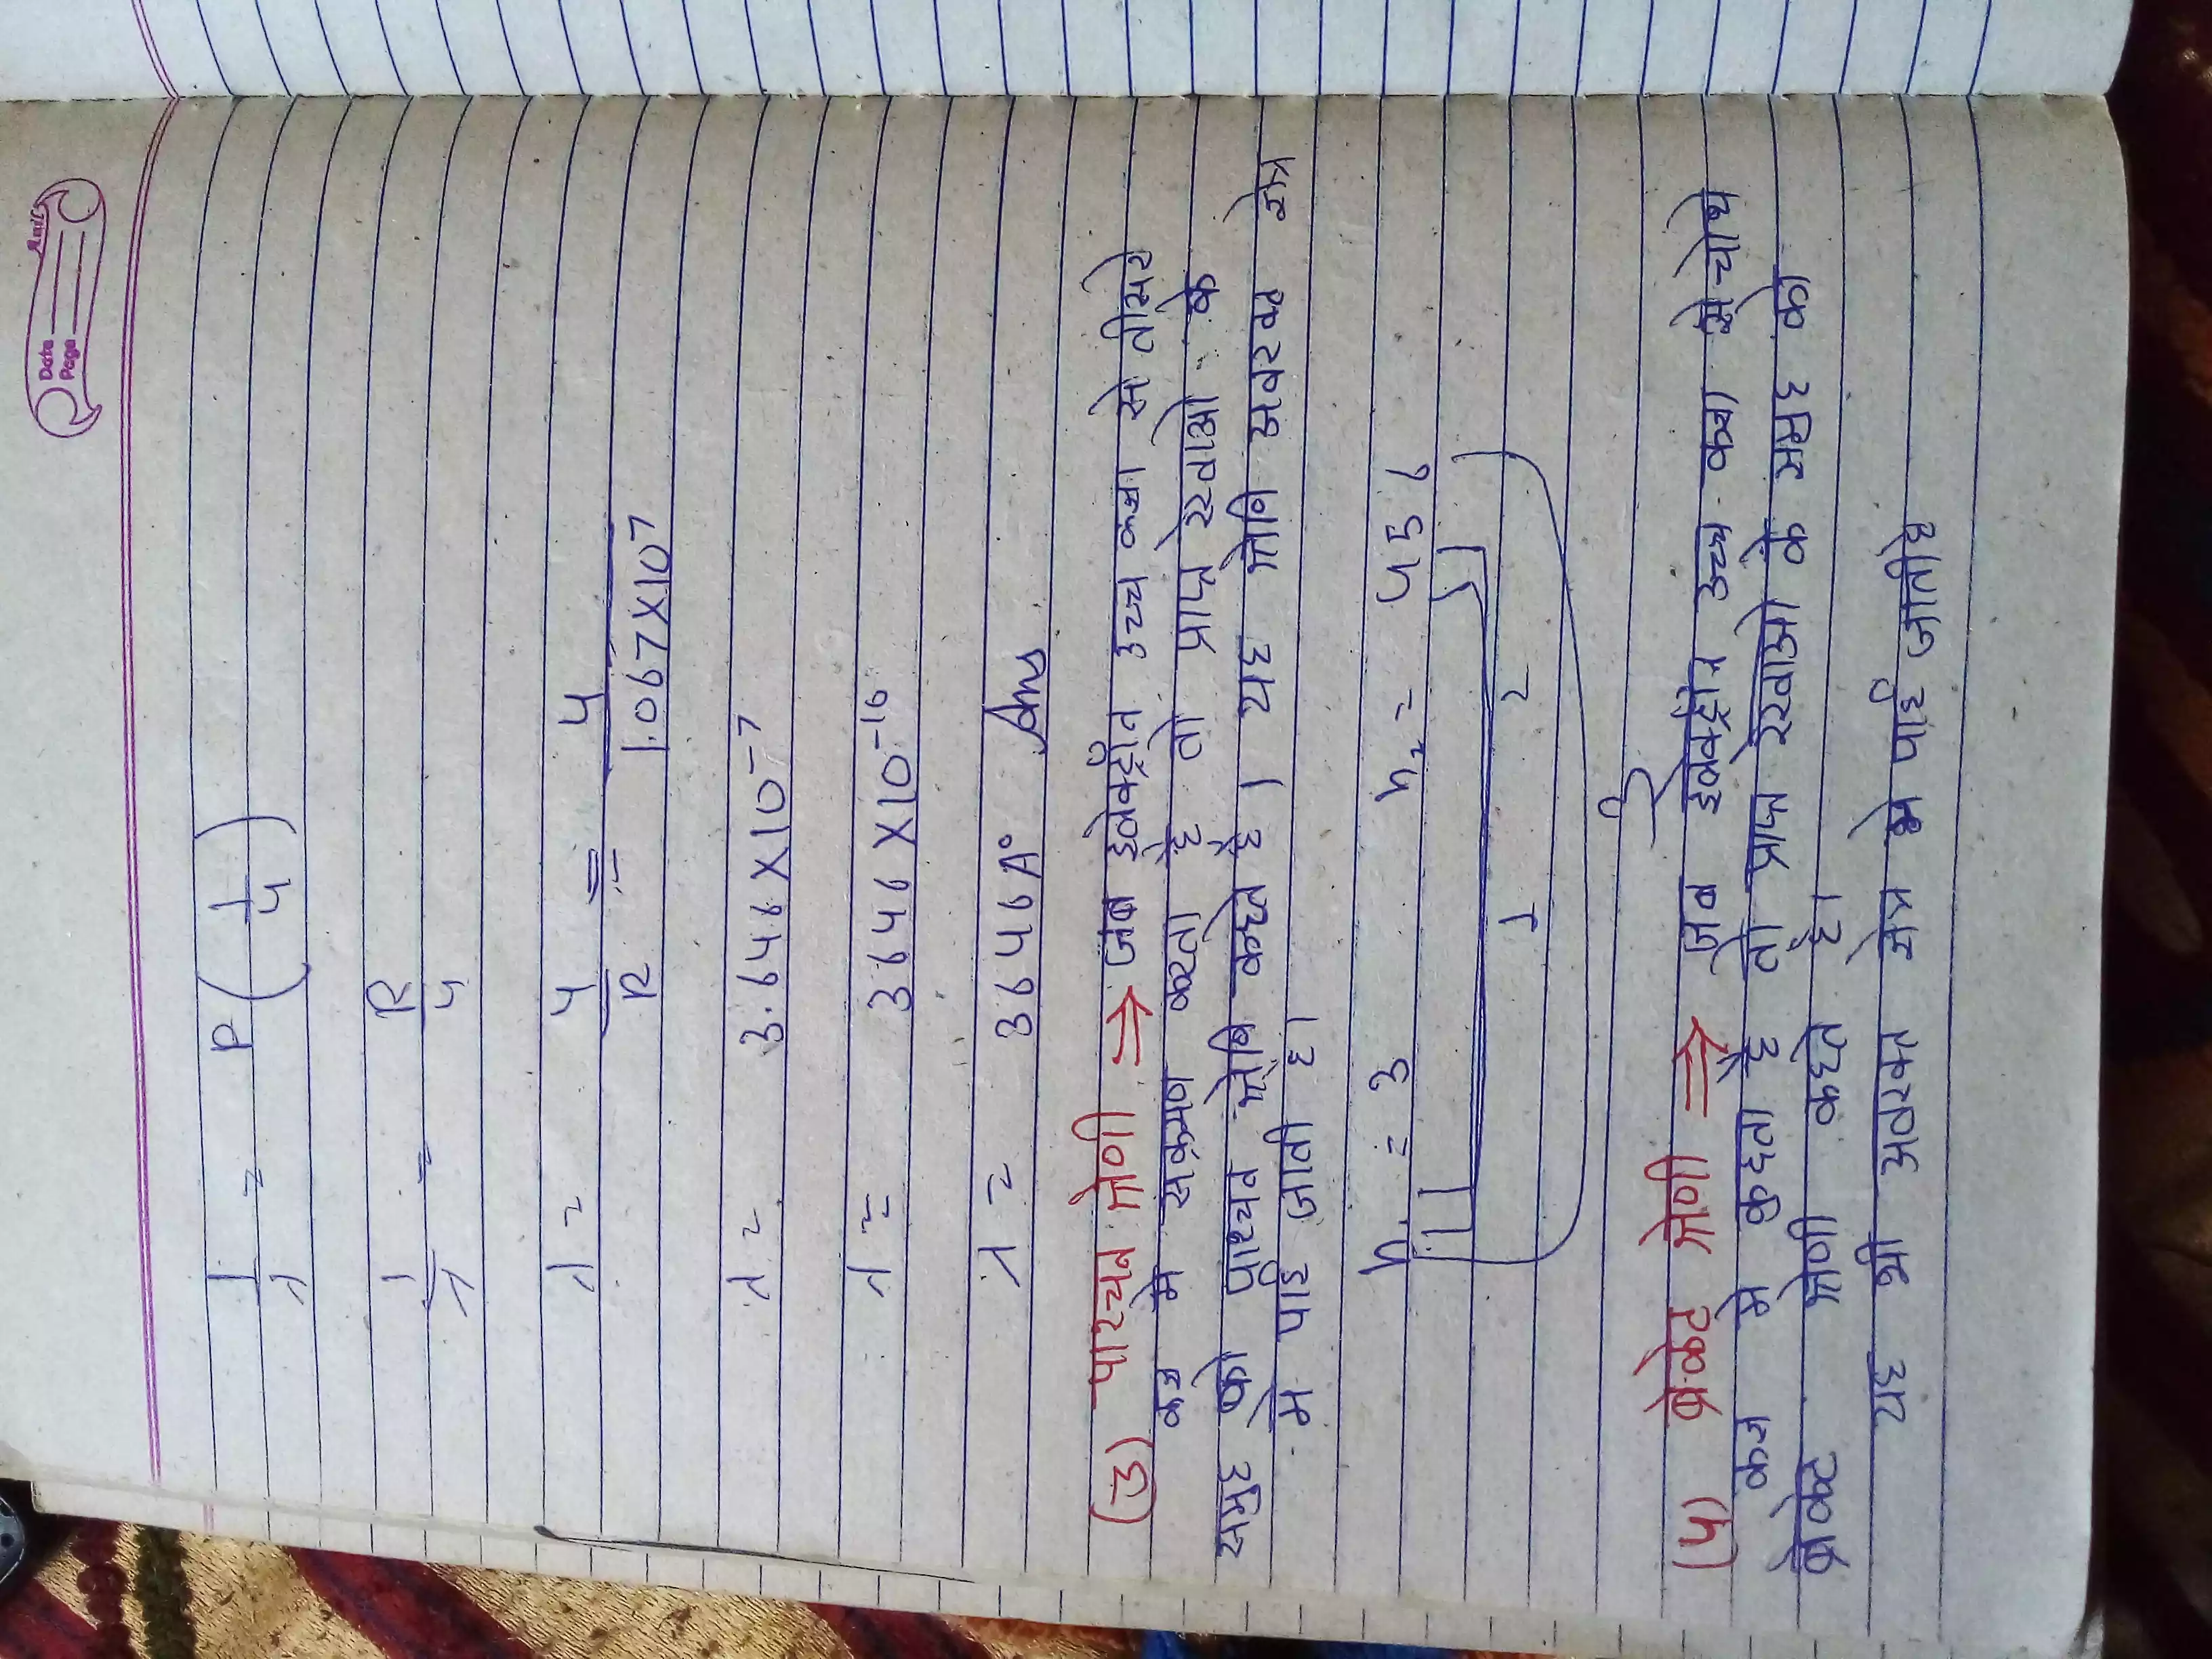 Date
Page
1/λ = R (1/4)
1/λ = R/4
λ = 4/R = 4/1.067X10⁷
λ = 3.646X10⁻⁷
λ = 3646X10⁻¹⁰
λ = 3646A° Ans
(3) पाश्चन श्रेणी ⇒ जब इलेक्ट्रॉन उच्च कक्षा से तीसरे
कक्ष मे सक्रमण करता है तो प्राप्त रेखाओ के
समुह को पाश्चन श्रेणि कहते है। यह श्रेणि अवरक्त क्षेत्र
मे पाई जाती है।
n₁ = 3 n₂ = 4 5 6
1 2
(4) ब्रेकेट श्रेणी ⇒ जब इलेक्ट्रोन उच्च कक्षा से चौथे
कक्ष मे कुदता है तो प्राप्त रेखाओ के समुह को
ब्रेकेट श्रेणी कहते है।
यह भी अवरक्त क्षेत्र मे पाई जातीहै